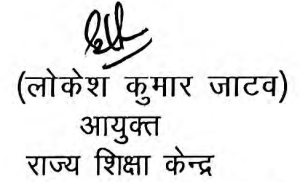 (लोकेश कुमार जाटव)
आयुक्त
राज्य शिक्षा केन्द्र